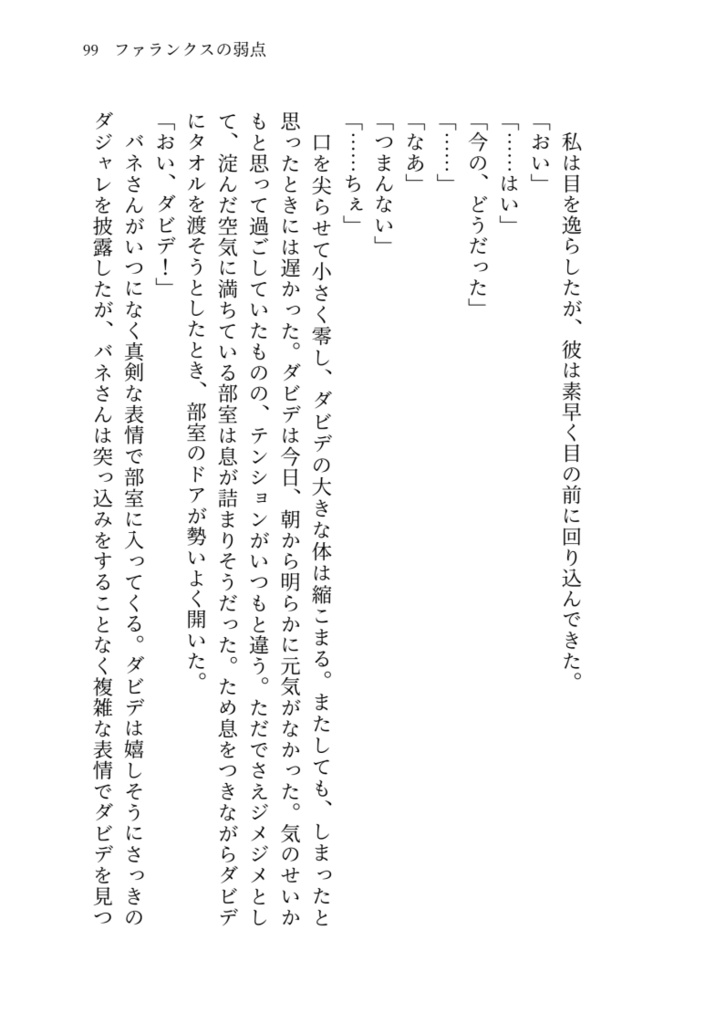 99 ファランクスの弱点
私は目を逸らしたが、彼は素早く目の前に回り込んできた。
「おい」
「……はい」
「今の、どうだった」
「……」
「なあ」
「つまんない」
「……ちぇ」
口を尖らせて小さく零し、ダビデの大きな体は縮こまる。またしても、しまったと
思ったときには遅かった。ダビデは今日、朝から明らかに元気がなかった。気のせいか
もと思って過ごしていたものの、テンションがいつもと違う。ただでさえジメジメとし
て、淀んだ空気に満ちている部室は息が詰まりそうだった。ため息をつきながらダビデ
にタオルを渡そうとしたとき、部室のドアが勢いよく開いた。
「おい、ダビデ!」
バネさんがいつになく真剣な表情で部室に入ってくる。ダビデは嬉しそうにさっきの
ダジャレを披露したが、バネさんは突っ込みをすることなく複雑な表情でダビデを見つ